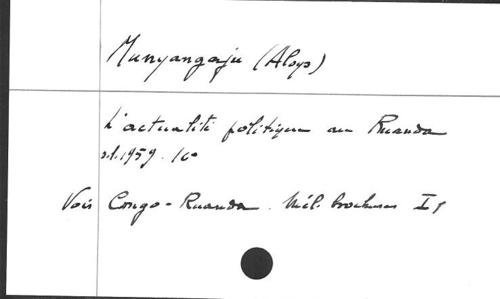 Munyangaju (Aloys)
L'actualité politique au Ruanda
s.l. 1959. 16°
Voir Congo-Ruanda. Mél. brochures I,